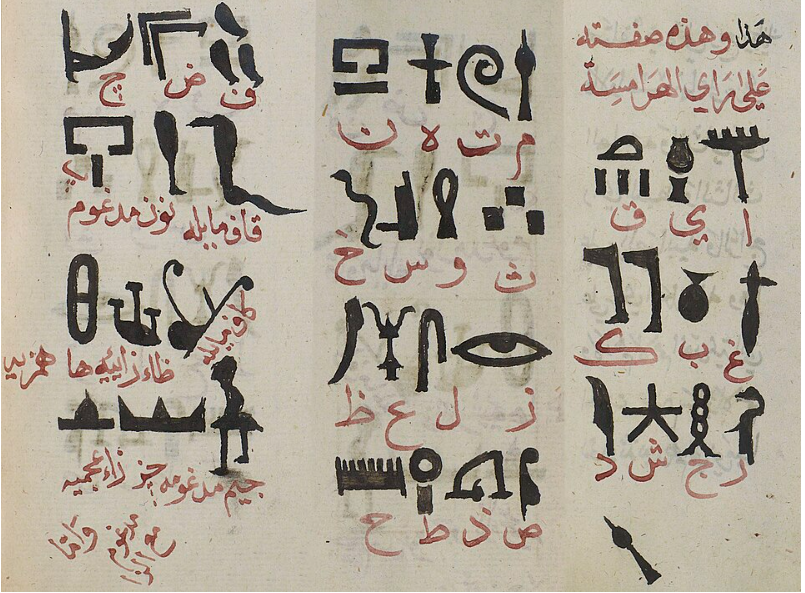 هَذا وهذه صفته
عَلى رَاي الهَرَامِسَة
ا ي ق
غ ب ك
ر ج ش د
م ت ه ن
ث و س خ
ز ل ع ظ
ص ذ ط ح
ف ض چ
پ
قاف مايله نون مدغوم
كاف مايله
ظاء زائيه ها
جيم مدغومه زاء عجميه